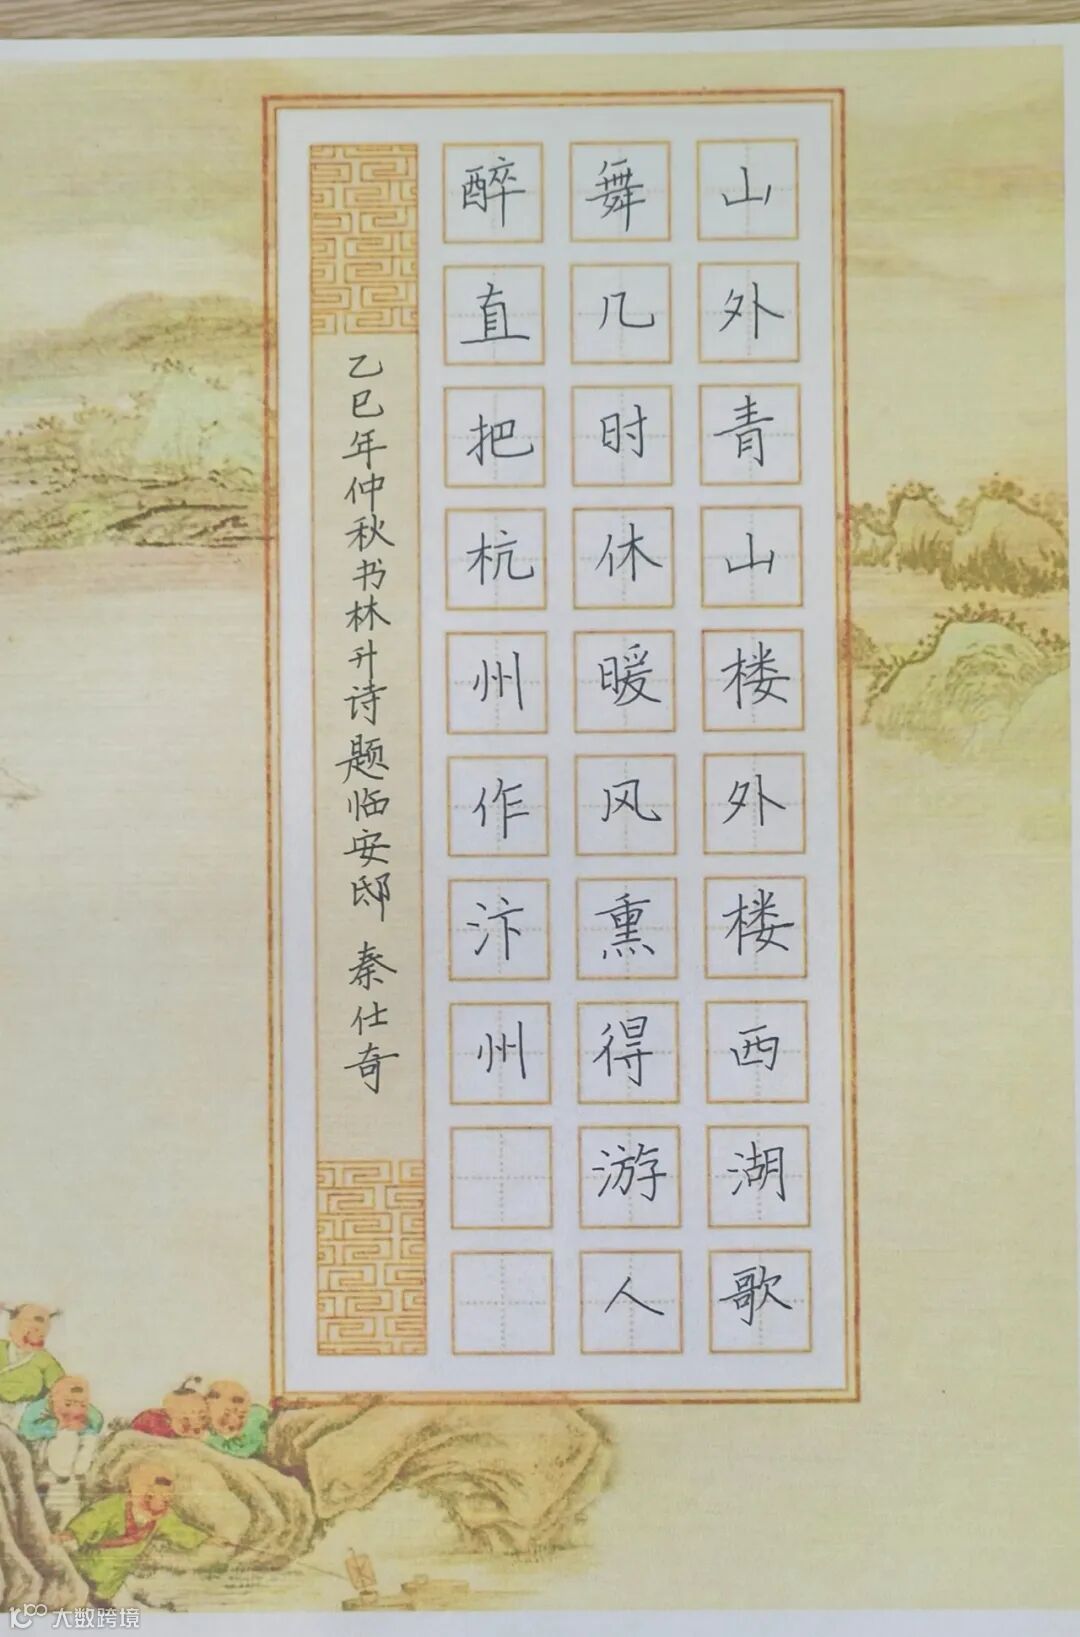 山外青山楼外楼西湖歌
舞几时休暖风熏得游人
醉直把杭州作汴州
乙巳年仲秋书林升诗题临安邸 秦仕奇
大数跨境